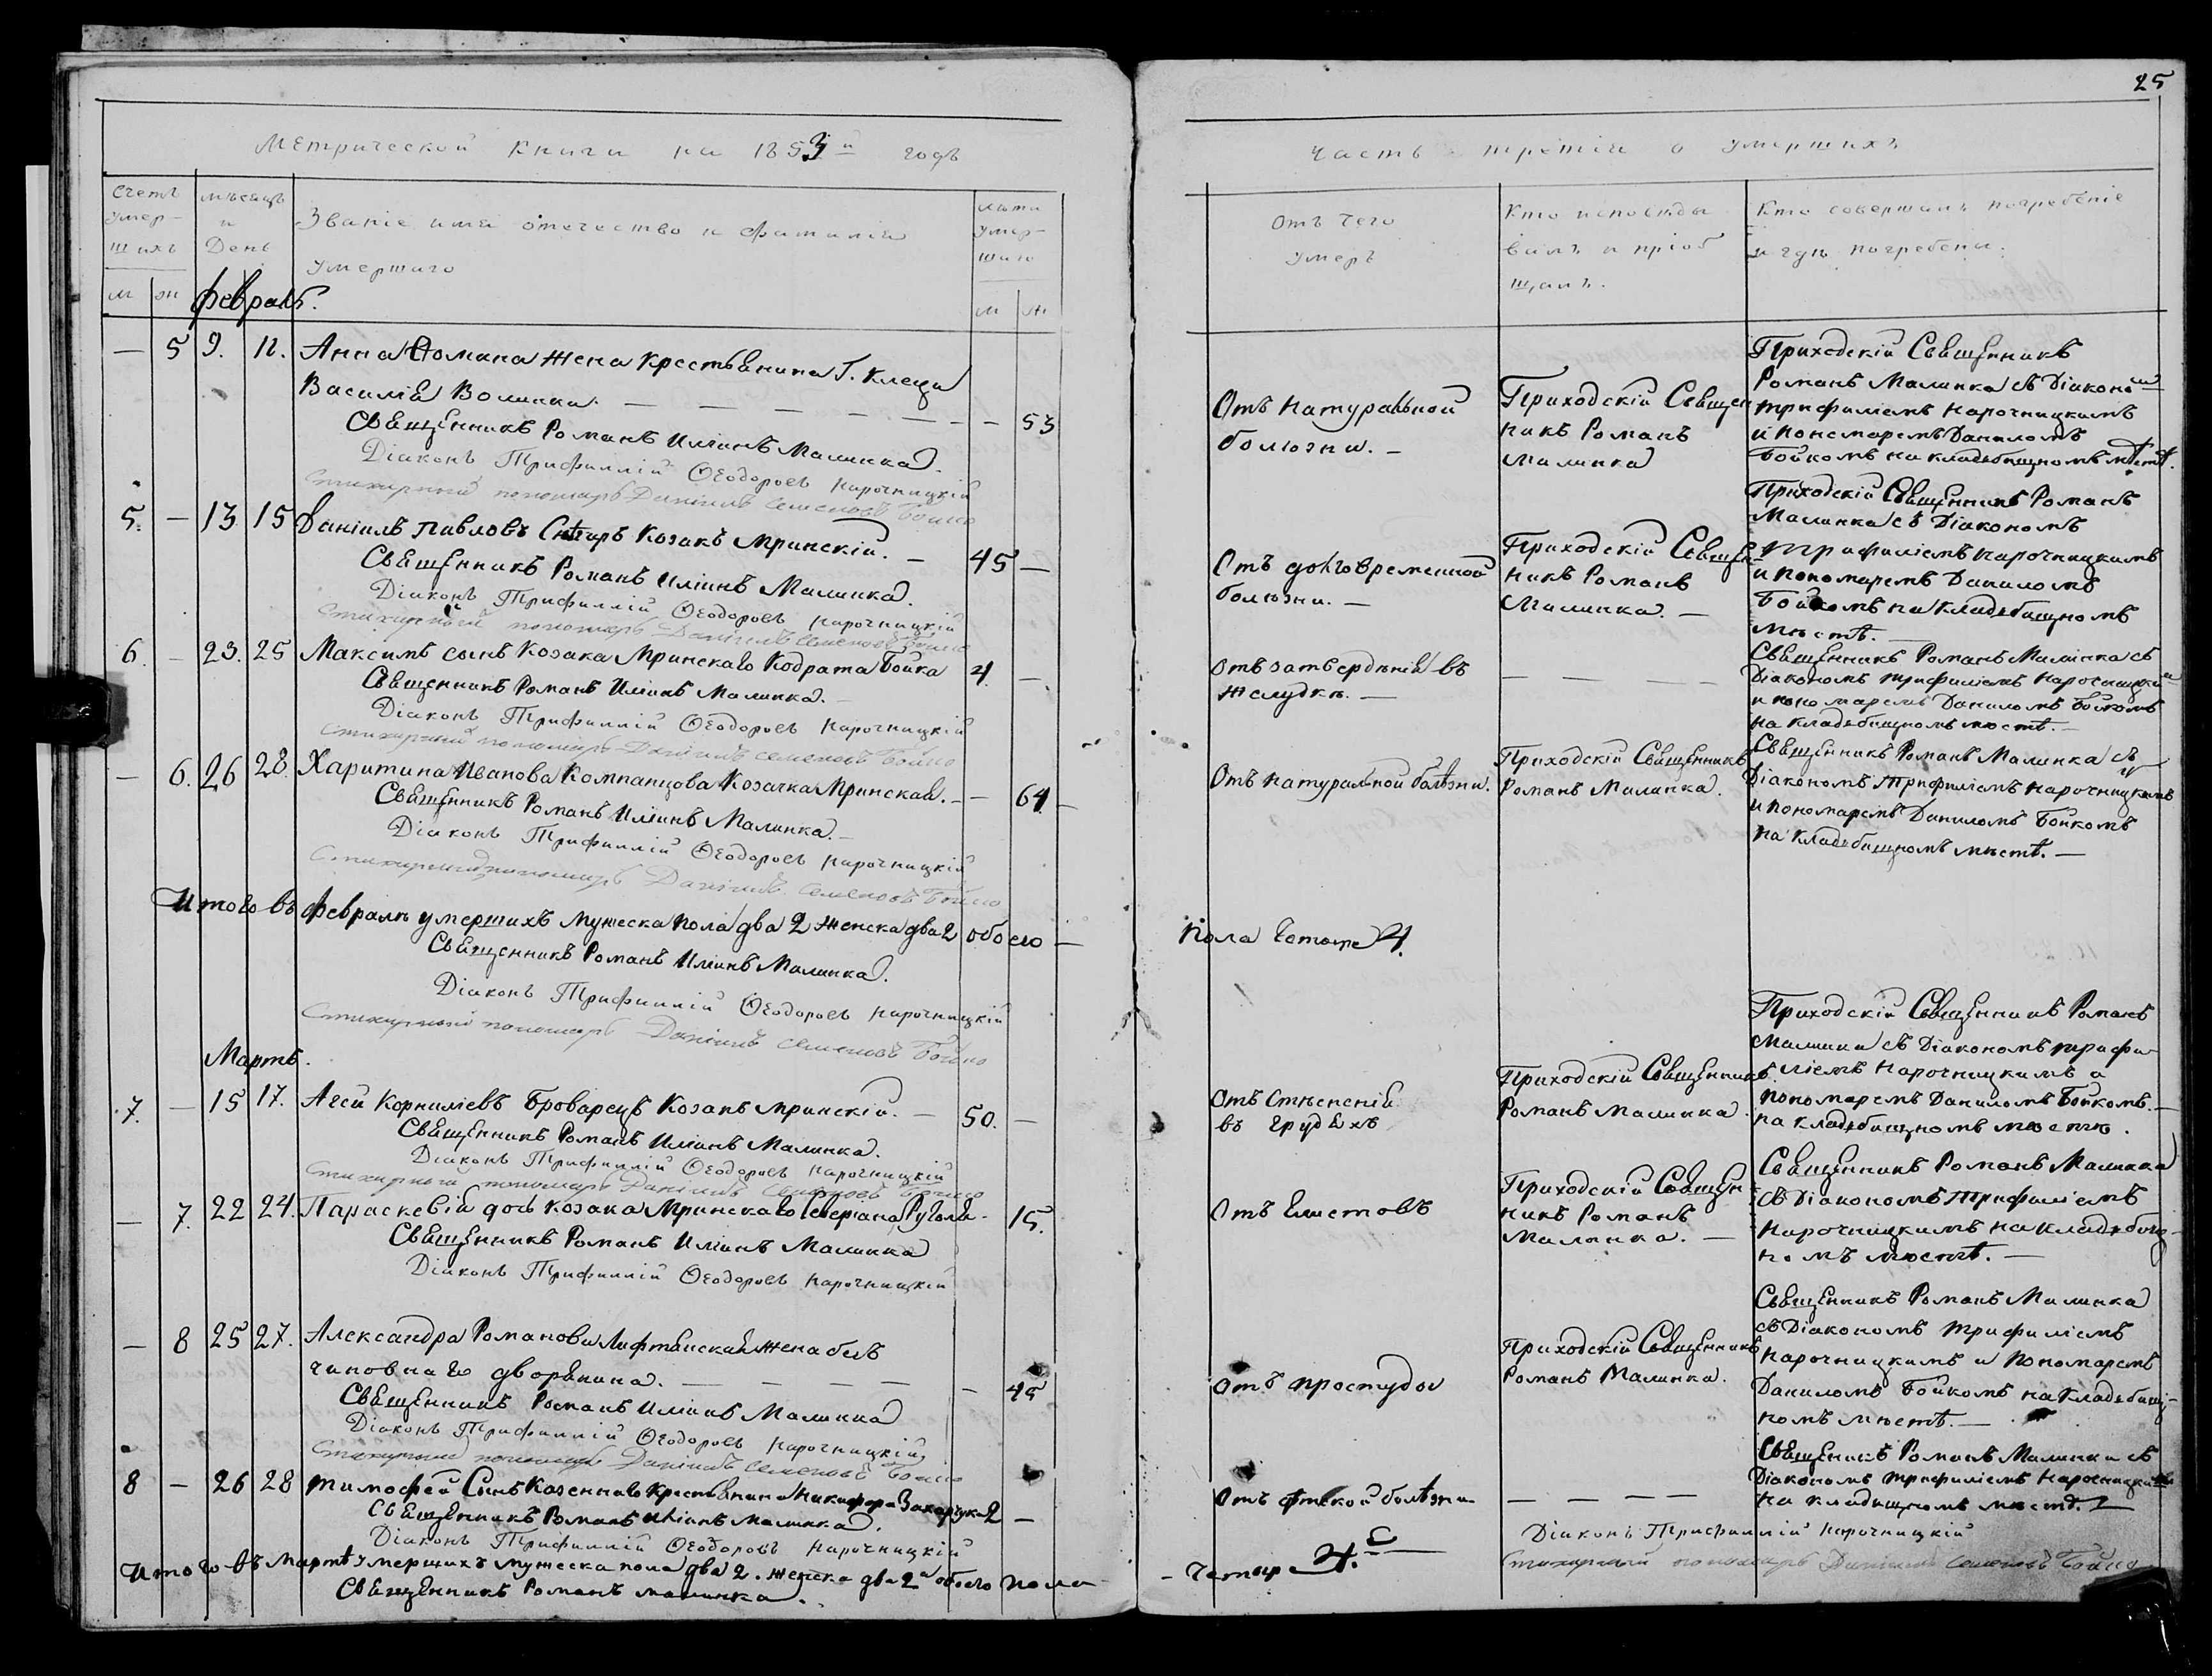 25
Метрической книги на 1853й годъ
Часть третія о умершихъ
Счетъ умер-
шихъ
мѣсяцъ
и
День
Званіе имя отечество и фамилія
умершаго
лѣта
умер-
шаго
м ж
м ж
Отъ чего
умеръ
Кто исповѣды
валъ и пріоб
щалъ.
Кто совершалъ погребеніе
и гдѣ погребены.
Февраль.
— 5 9. 11. Анна жена крестьянина Г. Клеца
Василія Волинка. — — — — — — 53
Священникъ Романъ Иліинъ Малинка.
Діаконъ Трифиллій Ѳеодоровъ Нарочницкій
Стихирный пономарь Даніилъ Семеновъ Бойко
Отъ натуральной
болѣзни. —
Приходскій Священ
никъ Романъ
Малинка
Приходскій Священникъ
Романъ Малинка съ Діакономъ
Трифиліемъ Нарочницкимъ
и пономаремъ Даниломъ
Бойкомъ на кладбищномъ мѣстѣ.
5. — 13 15 Даніилъ Павловъ Снѣгиръ Козакъ Мринскій. — 45 —
Священникъ Романъ Иліинъ Малинка.
Діаконъ Трифиллій Ѳеодоровъ Нарочницкій
Стихирный пономарь Даніилъ Семеновъ Бойко
Отъ долговременной
болѣзни. —
Приходскій Священ-
никъ Романъ
Малинка. —
Приходскій Священникъ Романъ
Малинка съ Діакономъ
Трифиліемъ Нарочницкимъ
и пономаремъ Даниломъ
Бойкомъ на кладебищномъ
мѣстѣ. —
6. — 23. 25 Максимъ сынъ Козака Мринскаго Кодрата Бойка 4. —
Священникъ Романъ Иліинъ Малинка. —
Діаконъ Трифиллій Ѳеодоровъ Нарочницкій
Стихирный пономарь Даніилъ Семеновъ Бойко
Отъ затвердѣнія въ
желудкѣ. —
— — — —
Священникъ Романъ Малинка съ
Діакономъ Трифиліемъ Нарочницким
и пономаремъ Даниломъ Бойкомъ
на кладебищномъ мѣстѣ. —
— 6. 26 28. Харитина Иванова Компанцова Козачка Мринская. — — 64. —
Священникъ Романъ Иліинъ Малинка. —
Діаконъ Трифиллій Ѳеодоровъ Нарочницкій
Стихирный пономарь Даніилъ Семеновъ Бойко
Отъ натуральной болѣзни.
Приходскій Священникъ
Романъ Малинка.
Священникъ Романъ Малинка съ
Діакономъ Трифиліемъ Нарочницкимъ
и пономаремъ Даниломъ Бойкомъ
на кладебищномъ мѣстѣ. —
Итого въ Февралѣ умершихъ мужеска пола два 2 женска два 2 обоего —
пола четыре 4.
Священникъ Романъ Иліинъ Малинка.
Діаконъ Трифиллій Ѳеодоровъ Нарочницкій
Стихирный пономарь Даніилъ Семеновъ Бойко
Мартъ.
7. — 15 17. Агей Корниліевъ Броварецъ Козакъ Мринскій. — 50. —
Священникъ Романъ Иліинъ Малинка.
Діаконъ Трифиллій Ѳеодоровъ Нарочницкій
Стихирный пономарь Даніилъ Семеновъ Бойко
Отъ стѣсненія
въ грудѣхъ
Приходскій Священникъ
Романъ Малинка.
Приходскій Священникъ Романъ
Малинка съ Діакономъ Трифи-
ліемъ Нарочницкимъ и
пономаремъ Даниломъ Бойкомъ. —
на кладебищномъ мѣстѣ.
— 7. 22 24. Параскевія дочь козака Мринскаго Севериана — 15.
Священникъ Романъ Иліинъ Малинка
Діаконъ Трифиллій Ѳеодоровъ Нарочницкій
Отъ глистовъ
Приходскій Священ
никъ Романъ
Малинка. —
Священникъ Романъ Малинка
съ Діакономъ Трифиліемъ
Нарочницкимъ на кладебищ-
номъ мѣстѣ. —
— 8 25 27. Александра Романова жена без
чиновнаго дворянина. — — — — — 45
Священникъ Романъ Иліинъ Малинка
Діаконъ Трифиллій Ѳеодоровъ Нарочницкій
Стихирный пономарь Даніилъ Семеновъ Бойко
Отъ простуды
Приходскій Священникъ
Романъ Малинка.
Священникъ Романъ Малинка
съ Діакономъ Трифиліемъ
Нарочницкимъ и пономаремъ
Даниломъ Бойкомъ на кладебищ-
номъ мѣстѣ. —
8 — 26 28 Тимофей Сынъ Казеннаго крестьянина Никифора Захарука 2 —
Священникъ Романъ Иліинъ Малинка.
Діаконъ Трифиллій Ѳеодоровъ Нарочницкій
Отъ дѣтской болѣзни
— — — —
Священникъ Романъ Малинка съ
Діакономъ Трифиліемъ Нарочницким
на кладищномъ мѣстѣ. —
Итого въ Мартѣ умершихъ мужеска пола два 2. женска два 2 обоего пола
— четыре 4.
Священникъ Романъ Малинка.
Діаконъ Трифиллій Нарочницкій
Стихирный пономарь Даніилъ Семеновъ Бойко